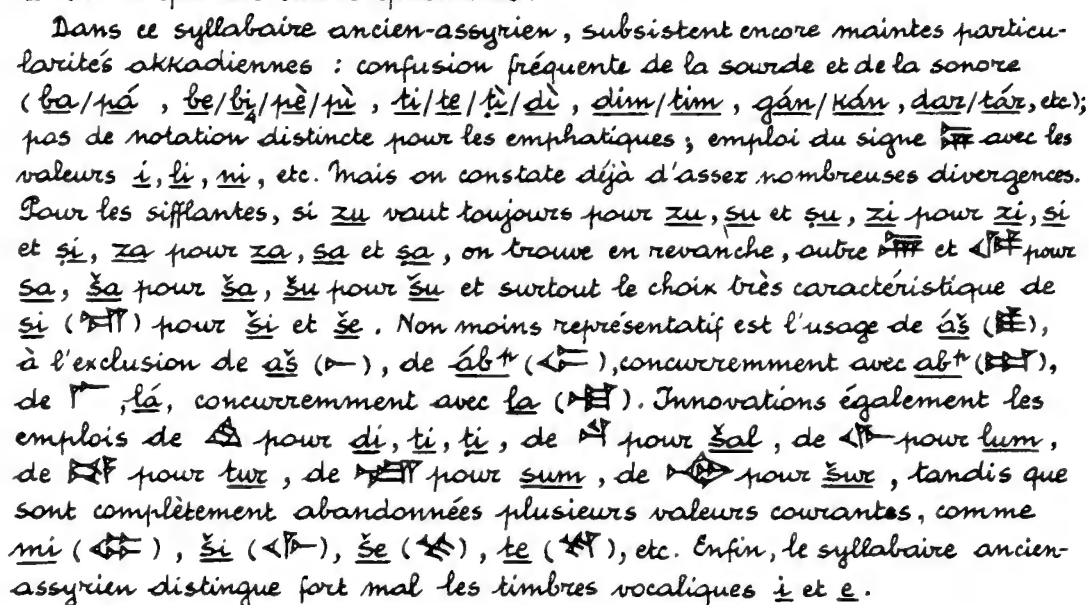 Dans ce syllabaire ancien-assyrien, subsistent encore maintes particu-
larités akkadiennes : confusion fréquente de la sourde et de la sonore
(ba/pá, be/bi₄/pè/pì, ti/te/ṭì/dì, dim/tim, gán/kán, dar/tár, etc.);
pas de notation distincte pour les emphatiques ; emploi du signe avec les
valeurs ì, lí, ni, etc. Mais on constate déjà d'assez nombreuses divergences.
Pour les sifflantes, si zu vaut toujours pour zu, su et ṣu, zi pour zi, si
et ṣi, za pour za, sa et ṣa, on trouve en revanche, outre et pour
sa, ša pour ša, šu pour šu et surtout le choix très caractéristique de
si () pour ši et še. Non moins représentatif est l'usage de áš (),
à l'exclusion de aš (), de áb⁺ᵖ (), concurremment avec ab⁺ᵖ (),
de , lá, concurremment avec la (). Innovations également les
emplois de pour di, ti, ṭi, de pour šal, de pour lum,
de pour tur, de pour sum, de pour šur, tandis que
sont complètement abandonnées plusieurs valeurs courantes, comme
mi (), ši (), še (), te (), etc. Enfin, le syllabaire ancien-
assyrien distingue fort mal les timbres vocaliques i et e.